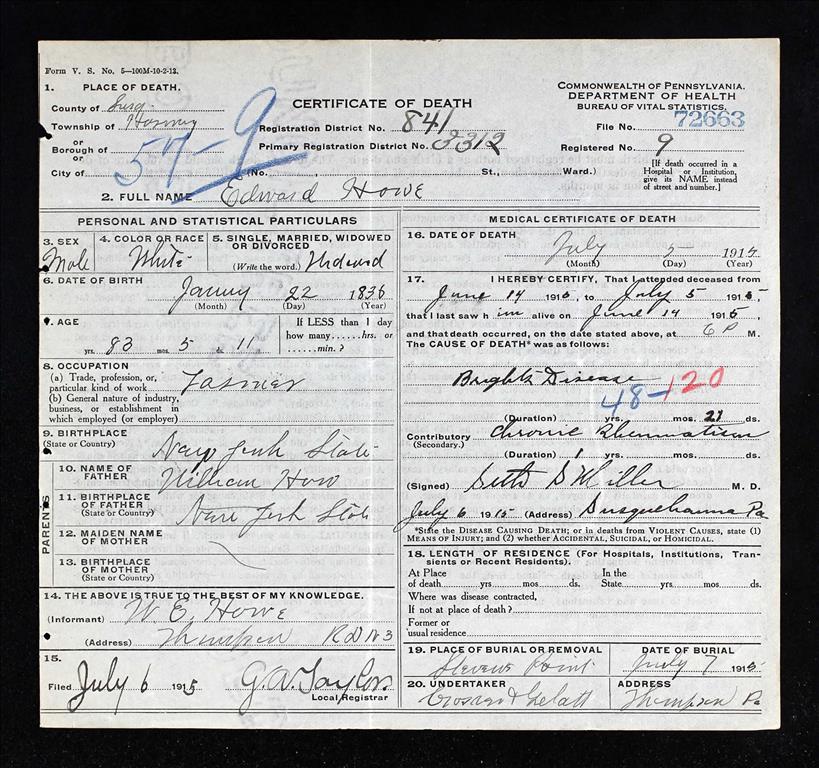 Form V. S. No. 5—100M-10-2-12.
1. PLACE OF DEATH.
County of Susq.
Township of
or
Borough of
or
City of
57-9
CERTIFICATE OF DEATH
Registration District No. 841
Primary Registration District No. 3312
(No. , St., Ward.)
COMMONWEALTH OF PENNSYLVANIA.
DEPARTMENT OF HEALTH
BUREAU OF VITAL STATISTICS.
File No. 72663
Registered No. 9
[If death occurred in a Hospital or Institution, give its NAME instead of street and number.]
2. FULL NAME Edward Howe
PERSONAL AND STATISTICAL PARTICULARS
3. SEX
Male
4. COLOR OR RACE
White
5. SINGLE, MARRIED, WIDOWED OR DIVORCED
(Write the word.)
6. DATE OF BIRTH
22
(Month) (Day) (Year)
7. AGE
yrs. 83 mos. 5 ds. 11
If LESS than 1 day how many......hrs. or ......min.?
8. OCCUPATION
(a) Trade, profession, or, particular kind of work Farmer
(b) General nature of industry, business, or establishment in which employed (or employer)
9. BIRTHPLACE
(State or Country)
State
PARENTS
10. NAME OF FATHER William How
11. BIRTHPLACE OF FATHER (State or Country)
State
12. MAIDEN NAME OF MOTHER
13. BIRTHPLACE OF MOTHER (State or Country)
14. THE ABOVE IS TRUE TO THE BEST OF MY KNOWLEDGE.
(Informant) W E Howe
(Address) Thompson R D N 3
15.
Filed July 6 1915 G. A. Taylor
Local Registrar
MEDICAL CERTIFICATE OF DEATH
16. DATE OF DEATH
July 5 1915
(Month) (Day) (Year)
17. I HEREBY CERTIFY, That I attended deceased from
June 14 1915, to July 5 1915,
that I last saw him alive on June 14 1915
and that death occurred, on the date stated above, at 6 P M.
The CAUSE OF DEATH* was as follows:
Brights Disease
48-120
(Duration) yrs. mos. 21 ds.
Contributory Chronic Rheumatism
(Secondary.)
(Duration) yrs. mos. ds.
(Signed) Seth S Miller M. D.
July 6 1915 (Address) Susquehanna Pa
*State the DISEASE CAUSING DEATH; or in deaths from VIOLENT CAUSES, state (1) MEANS OF INJURY; and (2) whether ACCIDENTAL, SUICIDAL, or HOMICIDAL.
18. LENGTH OF RESIDENCE (For Hospitals, Institutions, Transients or Recent Residents).
At Place of death......yrs......mos......ds. In the State......yrs......mos......ds.
Where was disease contracted,
If not at place of death?
Former or usual residence
19. PLACE OF BURIAL OR REMOVAL
Stevens Point
DATE OF BURIAL
July 7 1915
20. UNDERTAKER
ADDRESS
Thompson Pa